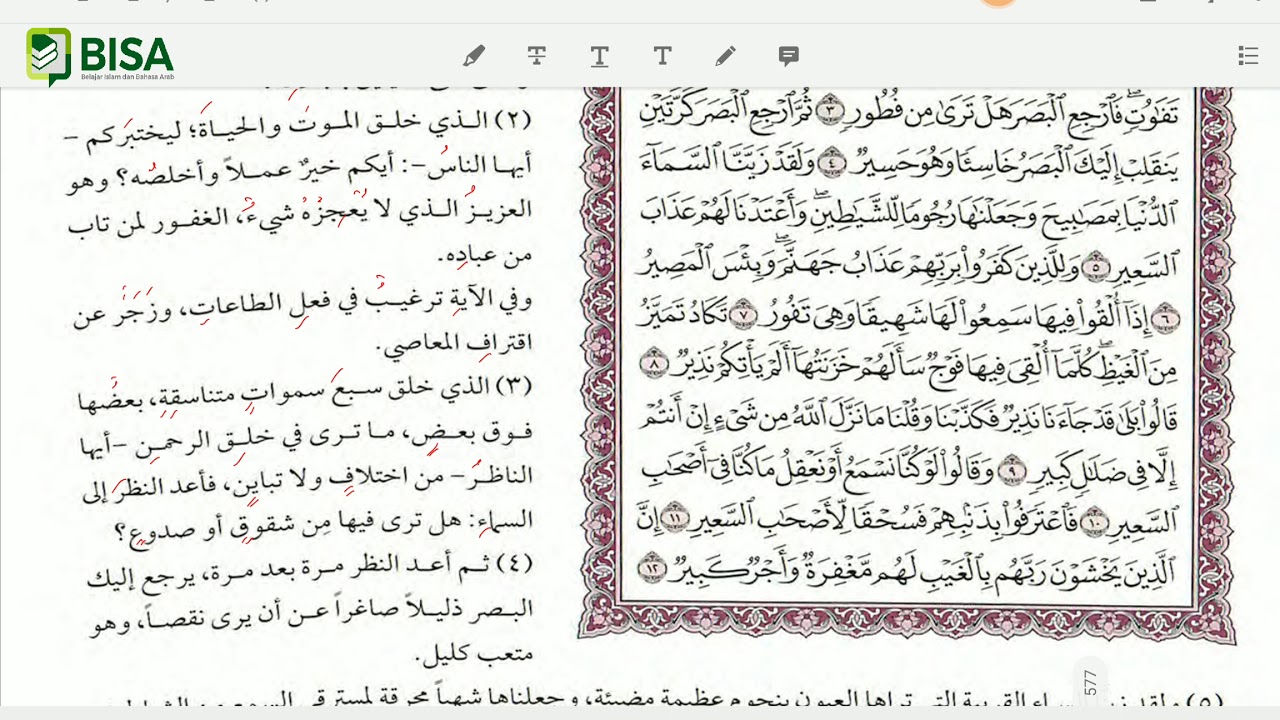 BISA
Belajar Islam dan Bahasa Arab
تَفَٰوُتٍۖ فَٱرْجِعِ ٱلْبَصَرَ هَلْ تَرَىٰ مِن فُطُورٍ ٣ ثُمَّ ٱرْجِعِ ٱلْبَصَرَ كَرَّتَيْنِ
يَنقَلِبْ إِلَيْكَ ٱلْبَصَرُ خَاسِئًا وَهُوَ حَسِيرٌ ٤ وَلَقَدْ زَيَّنَّا ٱلسَّمَآءَ
ٱلدُّنْيَا بِمَصَٰبِيحَ وَجَعَلْنَٰهَا رُجُومًا لِّلشَّيَٰطِينِۖ وَأَعْتَدْنَا لَهُمْ عَذَابَ
ٱلسَّعِيرِ ٥ وَلِلَّذِينَ كَفَرُوا۟ بِرَبِّهِمْ عَذَابُ جَهَنَّمَۖ وَبِئْسَ ٱلْمَصِيرُ
٦ إِذَآ أُلْقُوا۟ فِيهَا سَمِعُوا۟ لَهَا شَهِيقًا وَهِىَ تَفُورُ ٧ تَكَادُ تَمَيَّزُ
مِنَ ٱلْغَيْظِۖ كُلَّمَآ أُلْقِىَ فِيهَا فَوْجٌ سَأَلَهُمْ خَزَنَتُهَآ أَلَمْ يَأْتِكُمْ نَذِيرٌ ٨
قَالُوا۟ بَلَىٰ قَدْ جَآءَنَا نَذِيرٌ فَكَذَّبْنَا وَقُلْنَا مَا نَزَّلَ ٱللَّهُ مِن شَىْءٍ إِنْ أَنتُمْ
إِلَّا فِى ضَلَٰلٍ كَبِيرٍ ٩ وَقَالُوا۟ لَوْ كُنَّا نَسْمَعُ أَوْ نَعْقِلُ مَا كُنَّا فِىٓ أَصْحَٰبِ
ٱلسَّعِيرِ ١٠ فَٱعْتَرَفُوا۟ بِذَنۢبِهِمْ فَسُحْقًا لِّأَصْحَٰبِ ٱلسَّعِيرِ ١١ إِنَّ
ٱلَّذِينَ يَخْشَوْنَ رَبَّهُم بِٱلْغَيْبِ لَهُم مَّغْفِرَةٌ وَأَجْرٌ كَبِيرٌ ١٢
(٢) الذي خلق الموتَ والحياةَ؛ ليختبرَكم -
أيها الناسُ-: أيكم خيرٌ عملاً وأخلصُه؟ وهو
العزيزُ الذي لا يُعجِزُهُ شيءٌ، الغفور لمن تاب
من عبادِه.
وفي الآيةِ ترغيبٌ في فعلِ الطاعاتِ، وزَجَرَ عن
اقترافِ المعاصي.
(٣) الذي خلق سبعَ سمواتٍ متناسقةٍ، بعضُها
فوق بعضٍ، ما ترى في خلقِ الرحمنِ -أيها
الناظرُ- من اختلافٍ ولا تباينٍ، فأعد النظرَ إلى
السماءِ: هل ترى فيها مِن شقوقٍ أو صدوعٍ؟
(٤) ثم أعد النظر مرة بعد مرة، يرجع إليك
البصر ذليلاً صاغراً عن أن يرى نقصاً، وهو
متعب كليل.
577
القريبة التي تراها العيون بنجوم عظيمة مضيئة، وجعلناها شهباً محرقة لمسترقي السمع من